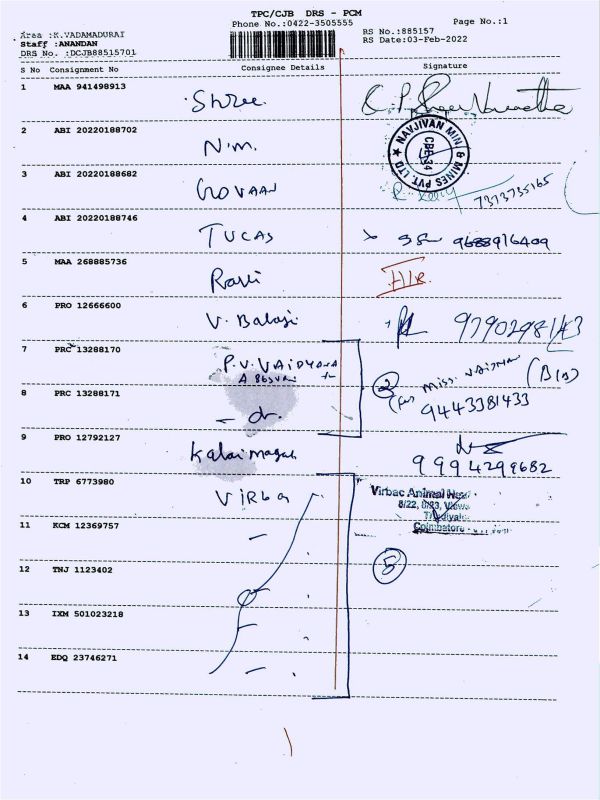 TPC/CJB DRS - PCM
Phone No.:0422-3505555
Page No.:1
Area :K.VADAMADURAI
Staff :ANANDAN
DRS No. :DCJB88515701
RS No.:885157
RS Date:03-Feb-2022
S No Consignment No Consignee Details Signature
1 MAA 941498913 Shree
2 ABI 20220188702 N.M.
NAVJIVAN MINI & MINES PVT. LTD ★
CBE-34
3 ABI 20220188682 GOVAAN
7373735165
4 ABI 20220188746 TUCAS 9688916409
5 MAA 268885736 Rasi
6 PRO 12666600 V. Balaji 9790298143
7 PRC 13288170 P.V. VAIDYANA
2 Miss.
8 PRC 13288171 - do. 9443381433
9 PRO 12792127 Kalaimagal 9994299682
10 TRP 6773980 VIRBA
Virbac Animal
Coimbatore
11 KCM 12369757
5
12 TNJ 1123402
13 IXM 501023218
14 EDQ 23746271